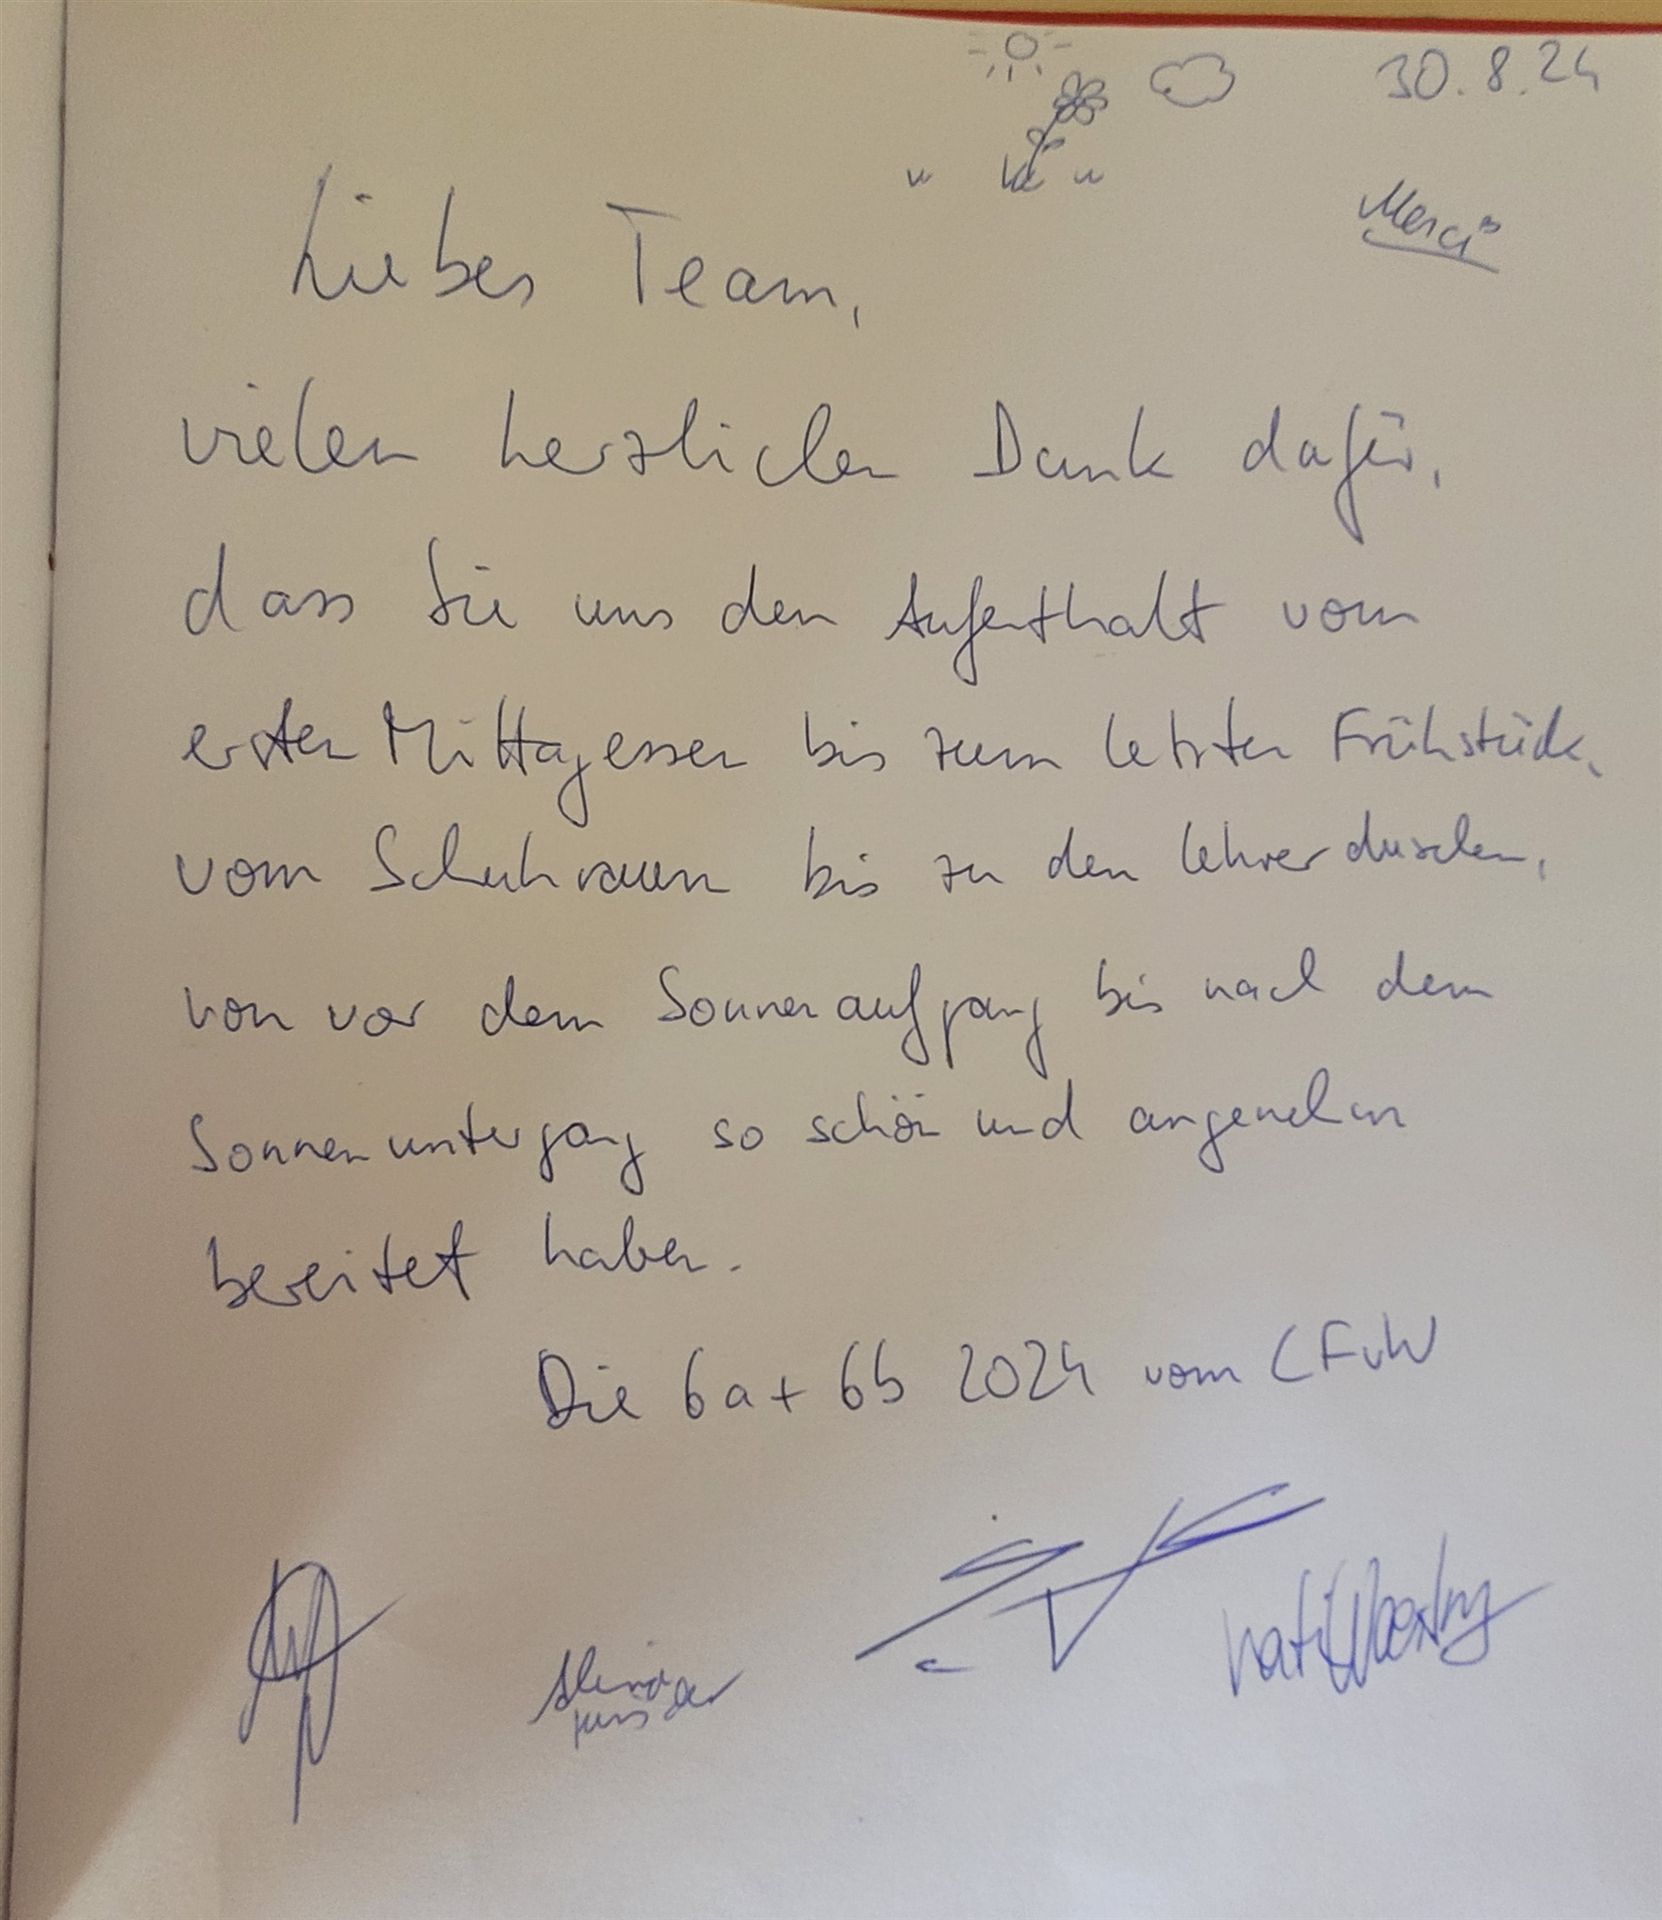 30.8.24
Merci
Liebes Team,
vielen herzlichen Dank dafür,
dass Sie uns den Aufenthalt vom
ersten Mittagessen bis zum letzten Frühstück,
vom Schuhraum bis zu den Lehrerduschen,
von vor dem Sonnenaufgang bis nach dem
Sonnenuntergang so schön und angenehm
bereitet haben.
Die 6a + 6b 2024 vom CFvW